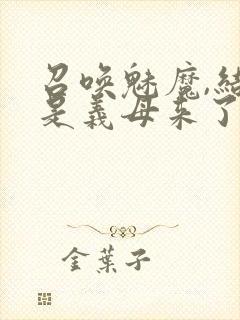 召唤魅魔,结
是义母来了
金叶子